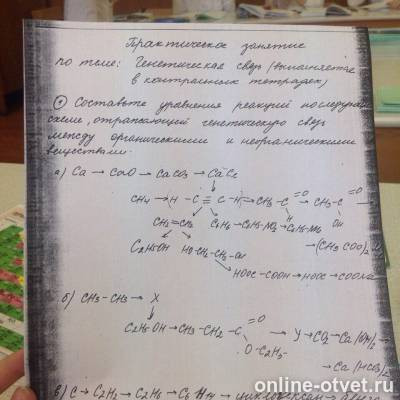 Практическое занятие
по теме: Генетическая связь (выполняется
в контрольных тетрадях)
① Составьте уравнения реакций
схеме, отражающей генетическую связь
между органическими и неорганическими
веществами.
а) Ca → CaO → CaCO3 → CaC2
CH4 → H - C ≡ C - H → CH3 - C = O H → CH3 - C = O OH →
CH2 = CH2 C6H6 → C6H5 - NO2 → C6H5 NH2
C2H5OH HO - CH2 - CH2 - OH → (CH3COO)2
HOOC - COOH → HOOC - COONa
б) CH3 - CH3 → X
C2H5OH → CH3 - CH2 - C = O O - C2H5 → У → CO2 → Ca(OH)2 →
→ Ca(HCO3)2
в) C → C2H2 → C2H6 → → циклогексан →
online-otvet.ru